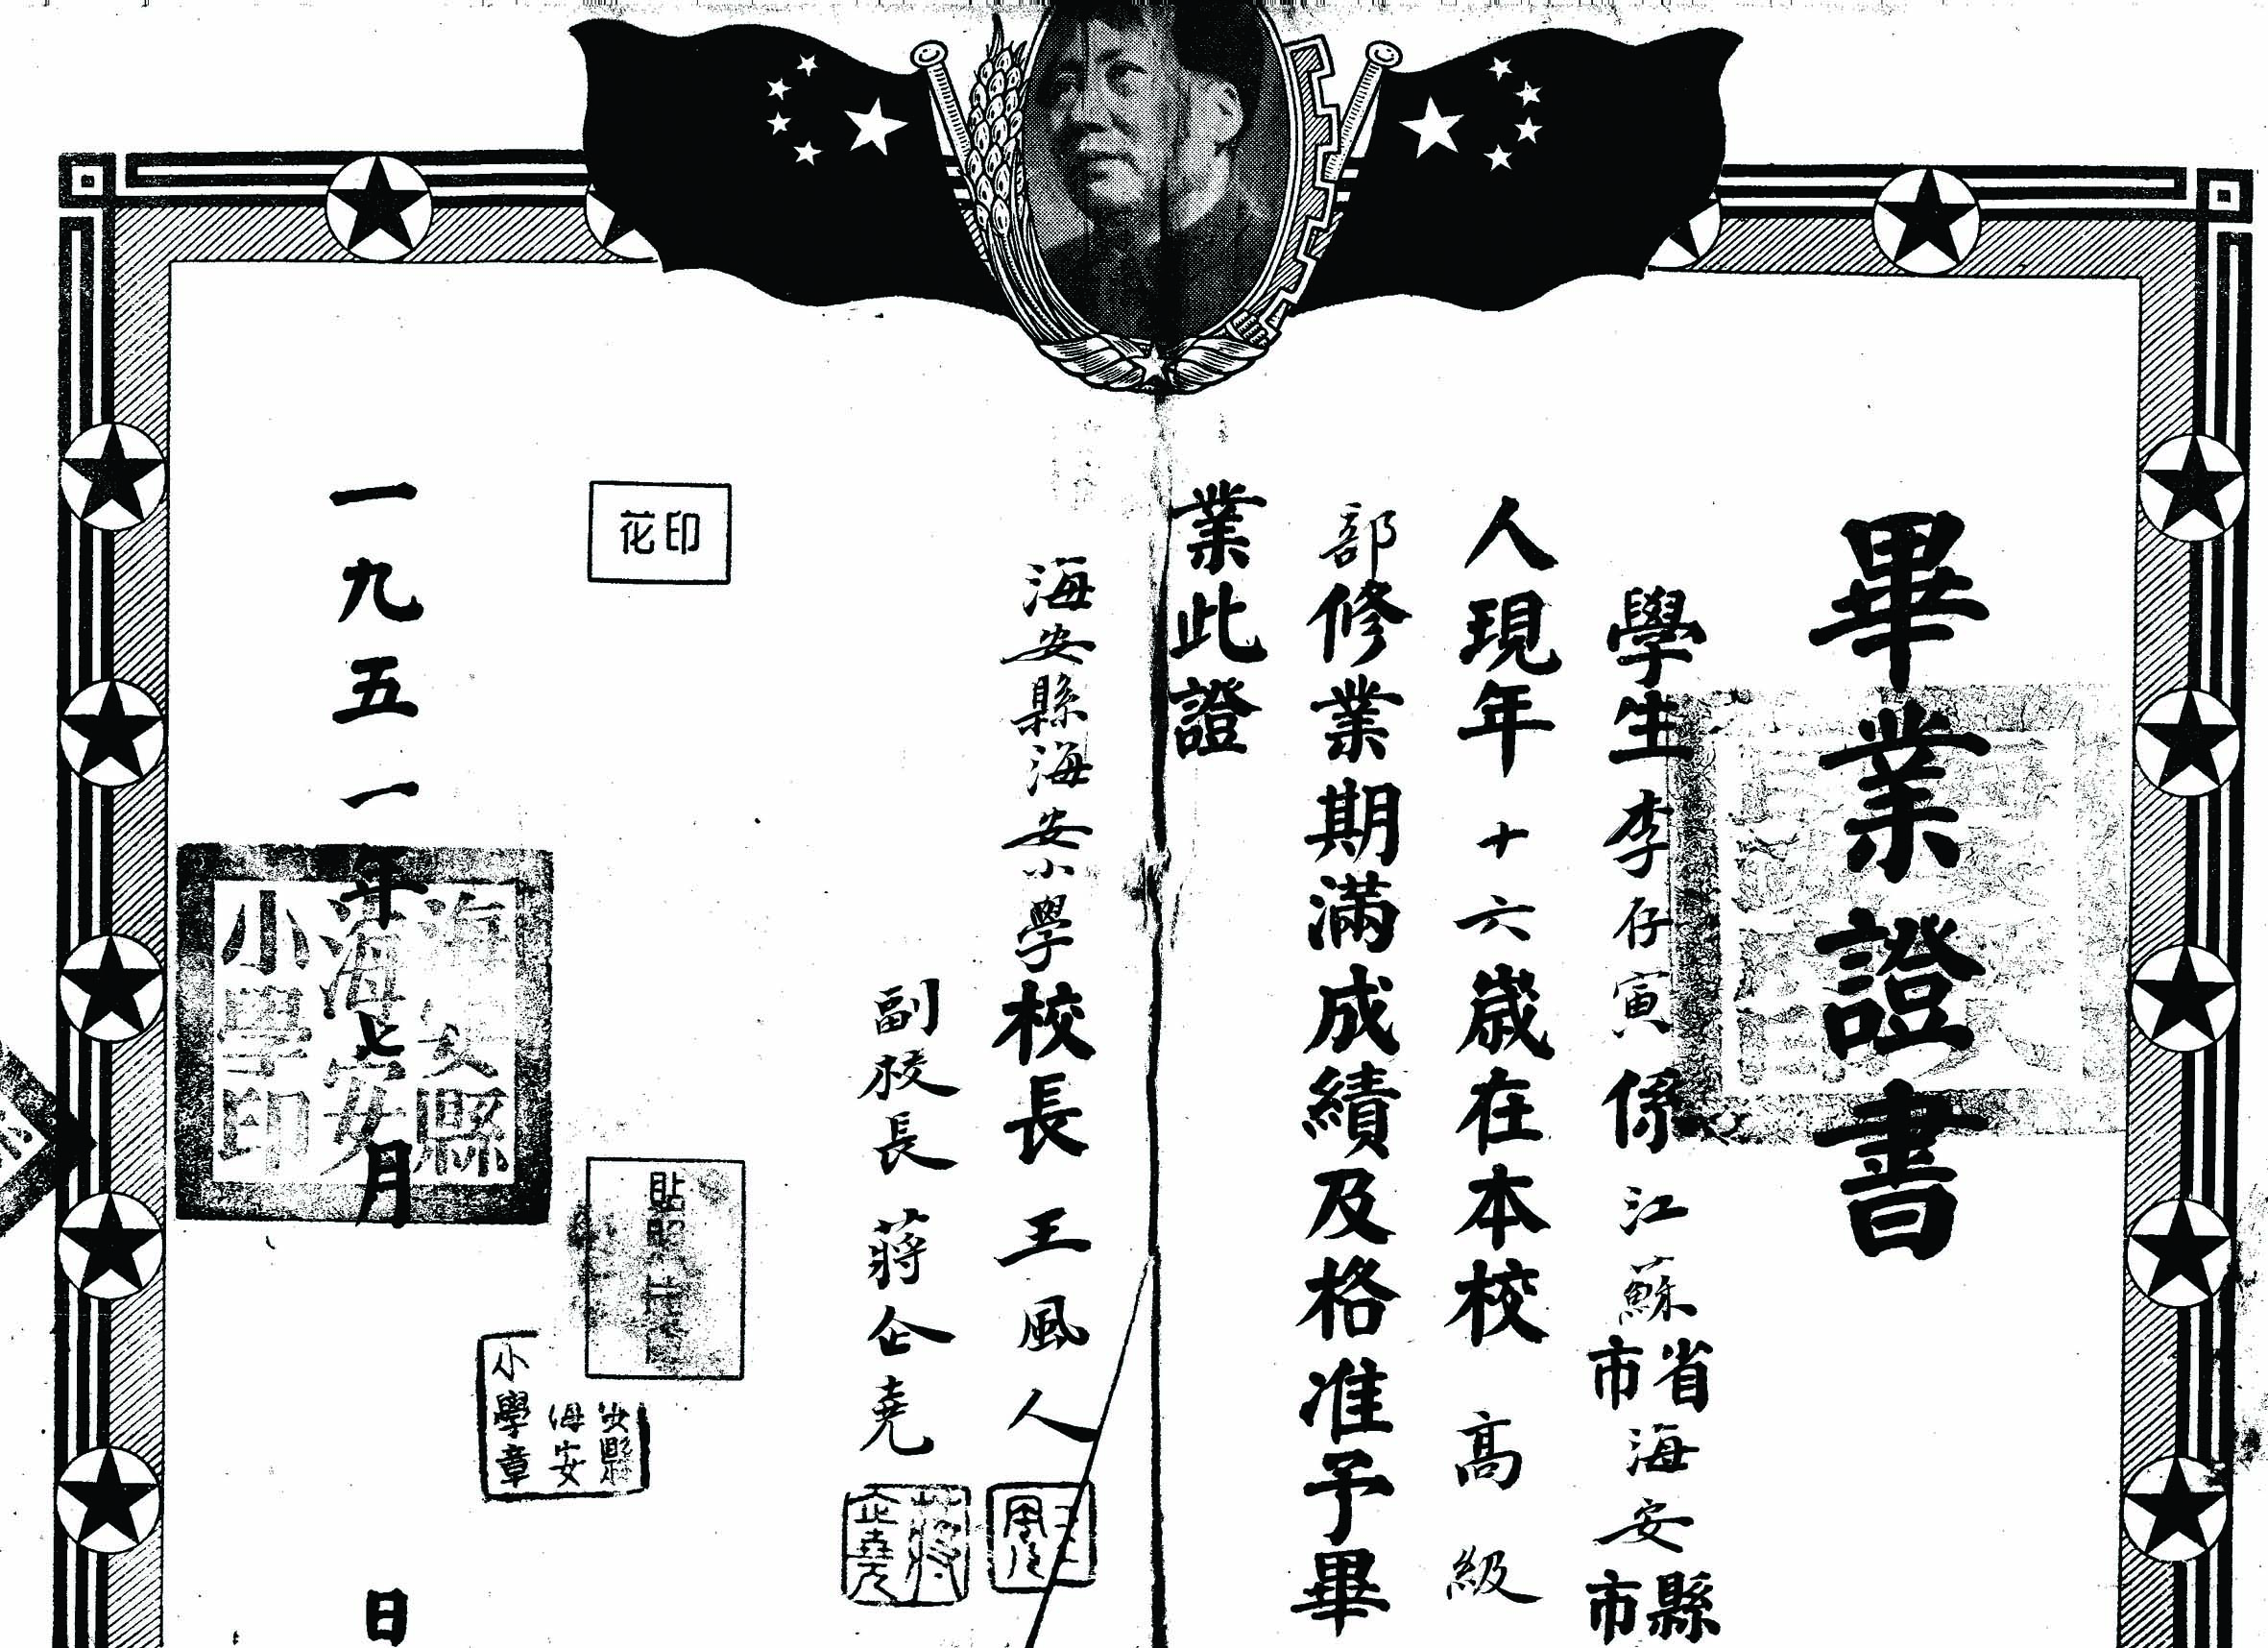 畢業證書
學生李仔寅係江蘇省市海安縣市
人現年十六歲在本校高級
部修業期滿成績及格准予畢
業此證
海安縣海安小學校長王風人
副校長蔣企堯
蔣企堯
印花
貼
小學章
一九五一年七月日
海安縣海安小學印